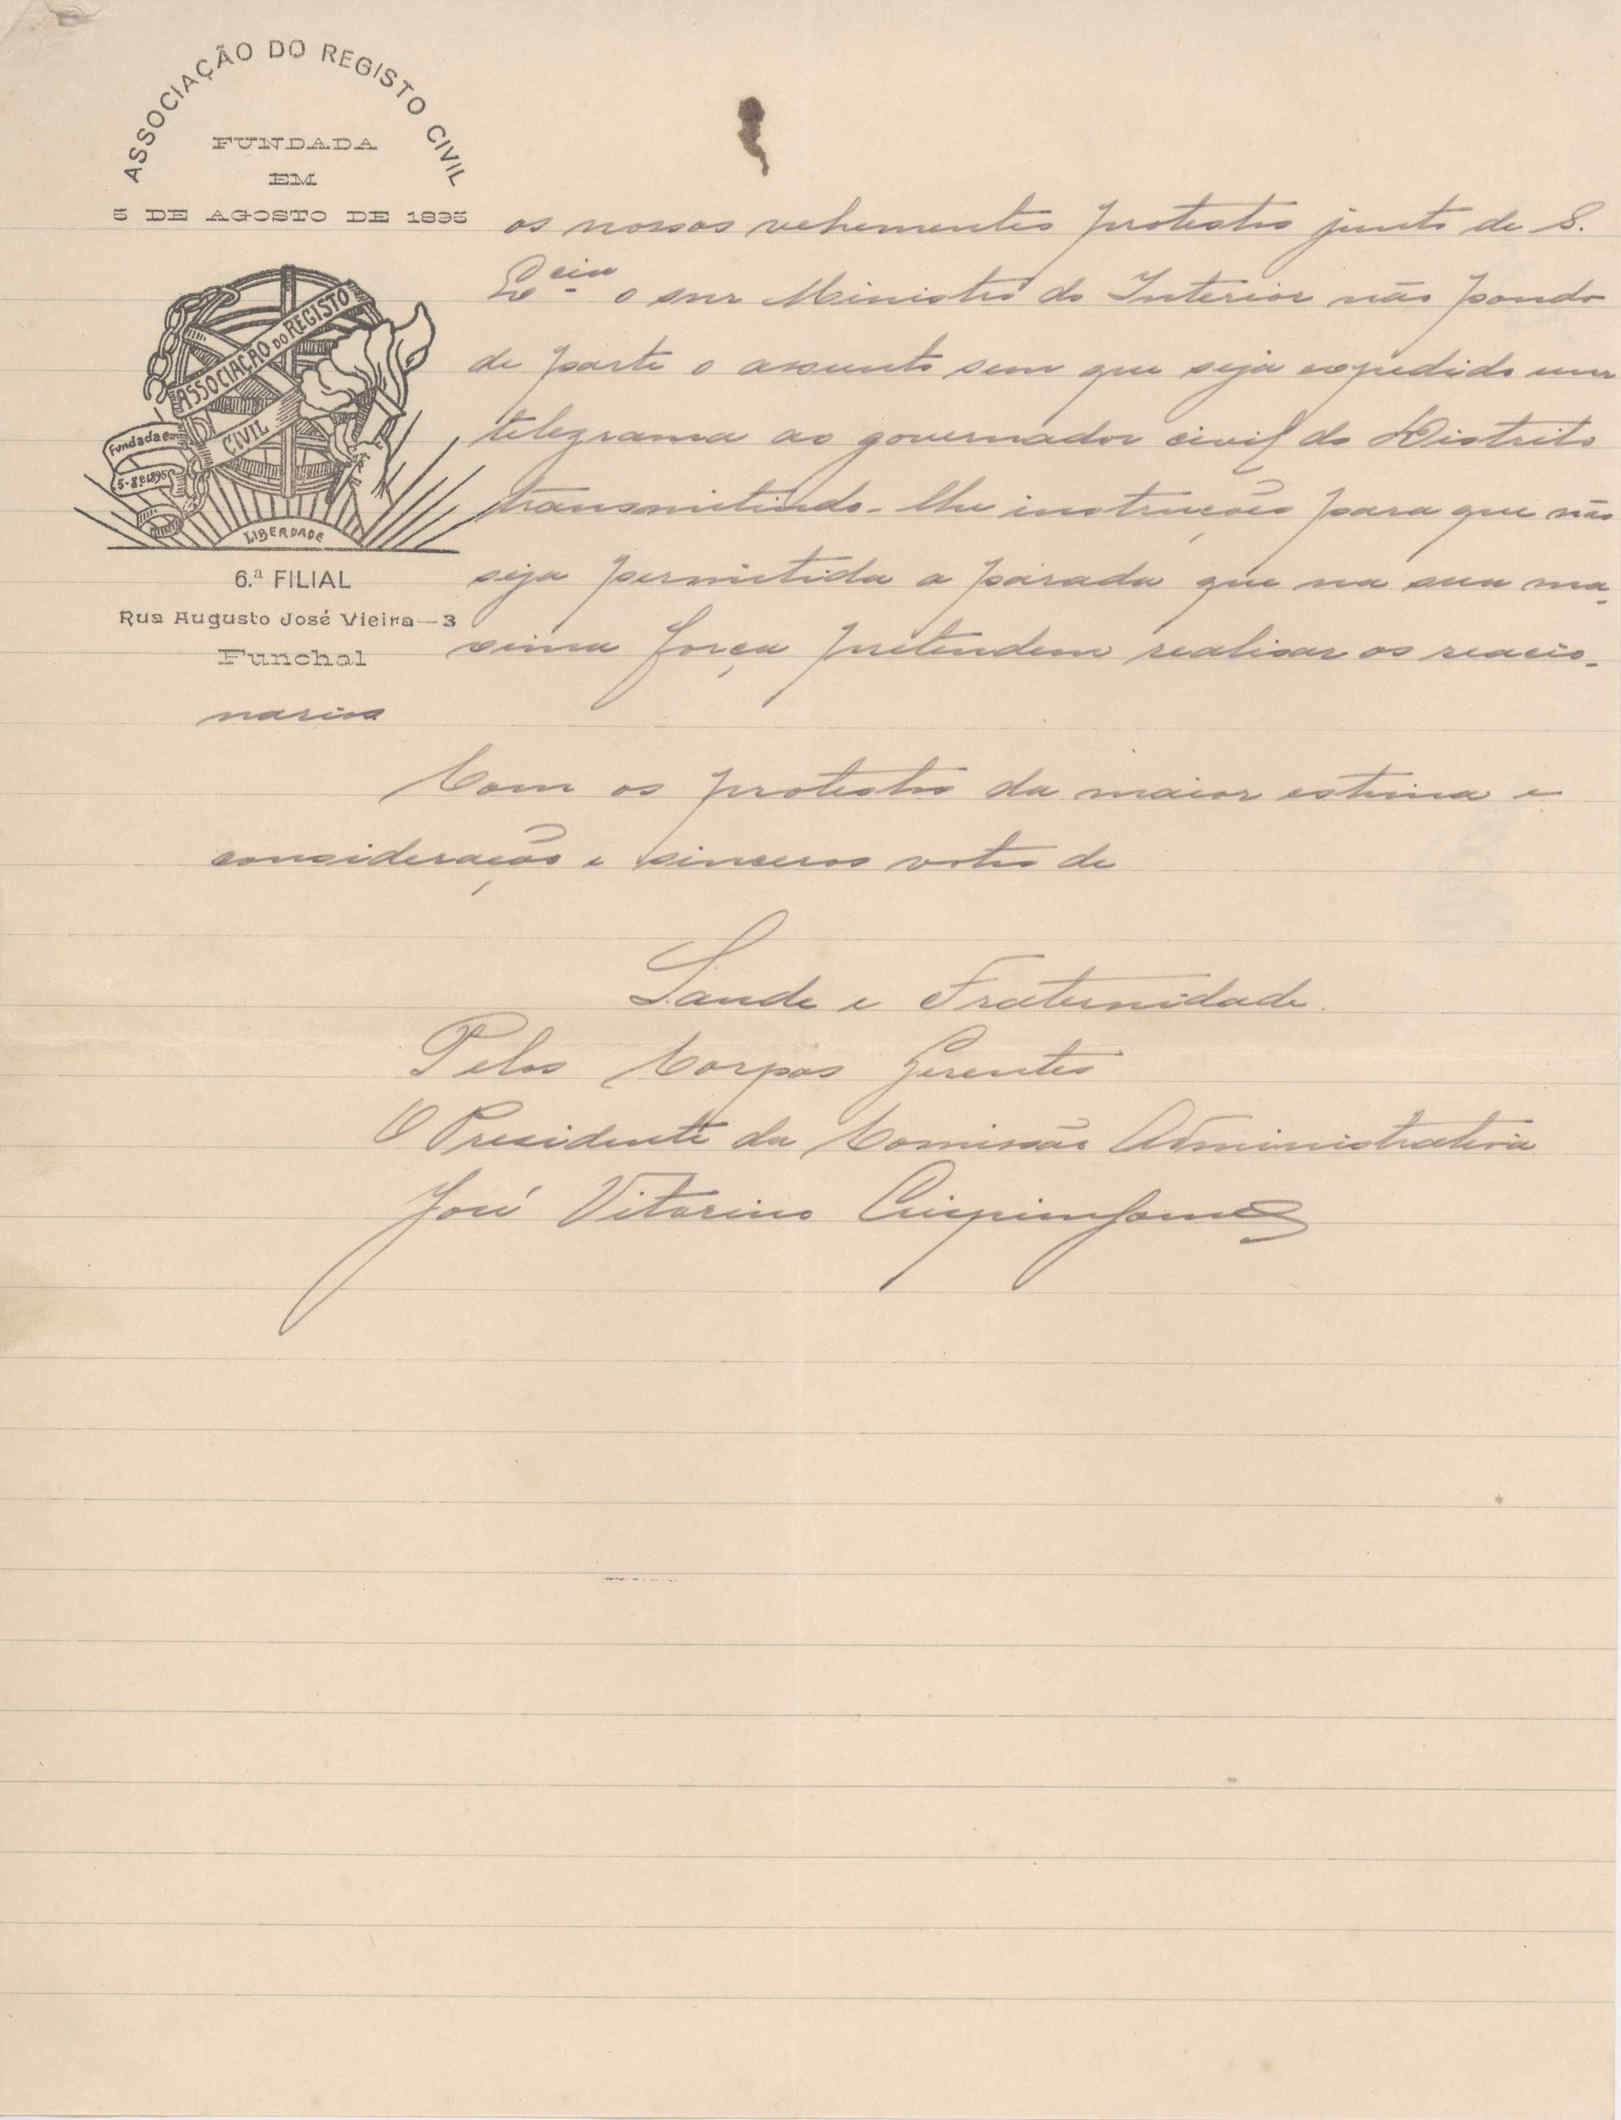 ASSOCIAÇÃO DO REGISTO CIVIL
FUNDADA
EM
5 DE AGOSTO DE 1895
ASSOCIAÇÃO DO REGISTO
CIVIL
Fundada em
5-8-1895
LIBERDADE
6.ª FILIAL
Rua Augusto José Vieira—3
Funchal
os nossos vehementes protestos junto de S.
Ex.cia o snr Ministro do Interior não pondo
de parte o assunto sem que seja expedido um
telegrama ao governador civil do Districto
transmitindo-lhe instruções para que não
seja permitida a parada que na sua ma-
xima força pretendem realisar os reacio-
narios
Com os protestos da maior estima e
consideração e sinceros votos de
Saude e Fraternidade.
Pelos Corpos Gerentes
O Presidente da Comissão Administrativa
José Vitorino Crispim Gomes